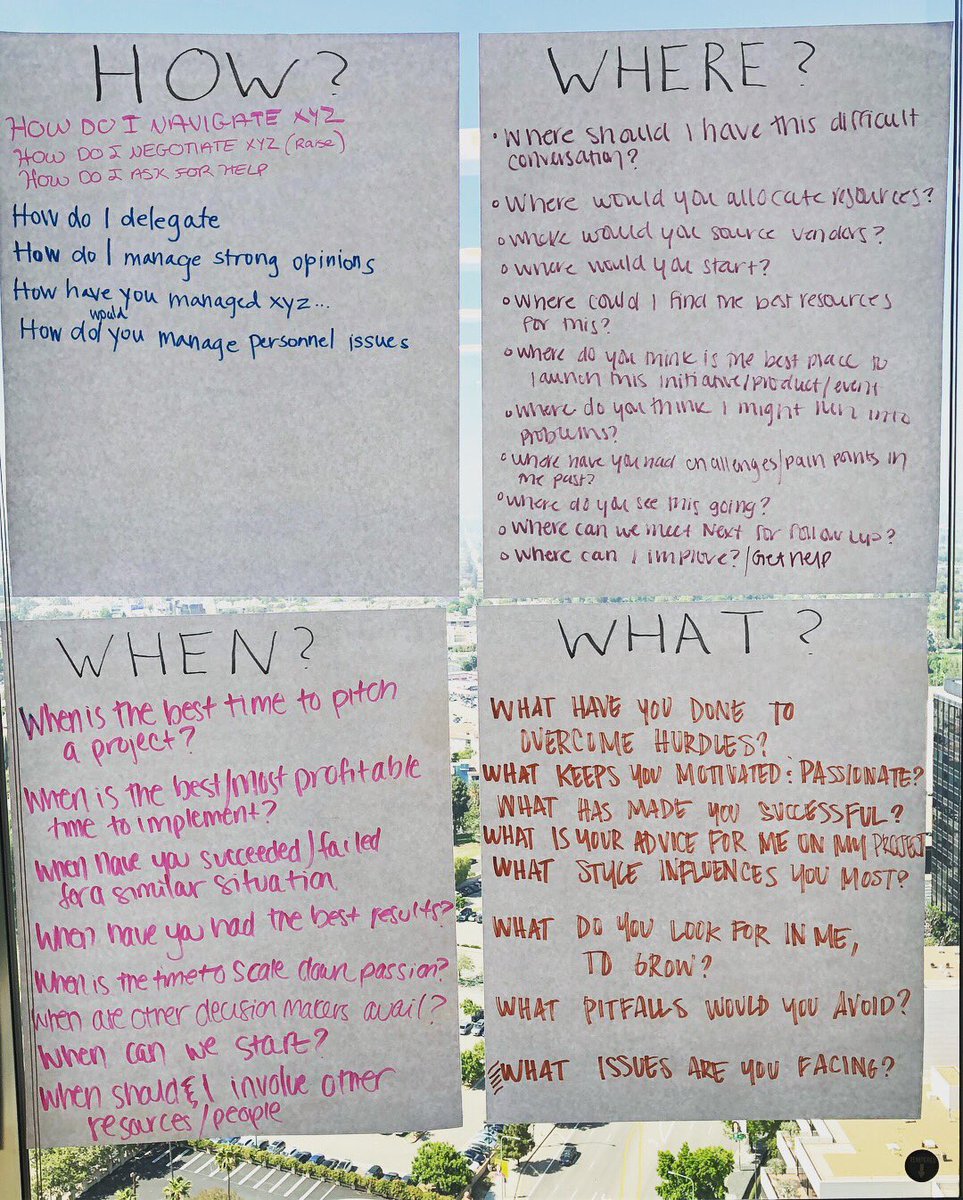 HOW?
HOW DO I NAVIGATE XYZ
HOW DO I NEGOTIATE XYZ (Raise)
HOW DO I ASK FOR HELP
How do I delegate
How do I manage strong opinions
How have you managed xyz...
would
How do you manage personnel issues
WHERE?
• Where should I have this difficult
conversation?
• Where would you allocate resources?
• Where would you source vendors?
• Where would you start?
• Where could I find the best resources
for this?
• Where do you think is the best place to
launch this initiative/product/event
• Where do you think I might run into
problems?
• Where have you had challenges/pain points in
the past?
• Where do you see this going?
• Where can we meet Next for follow up?
• Where can I improve?/Get help
WHEN?
When is the best time to pitch
a project?
When is the best/most profitable
time to implement?
When have you succeeded/failed
for a similar situation
When have you had the best results?
When is the time to scale down passion?
When are other decision makers avail?
When can we start?
When should I involve other
resources/people
WHAT?
WHAT HAVE YOU DONE TO
OVERCOME HURDLES?
WHAT KEEPS YOU MOTIVATED : PASSIONATE?
WHAT HAS MADE YOU SUCCESSFUL?
WHAT IS YOUR ADVICE FOR ME ON MY PROJECT
WHAT STYLE INFLUENCES YOU MOST?
WHAT DO YOU LOOK FOR IN ME,
TO GROW?
WHAT PITFALLS WOULD YOU AVOID?
WHAT ISSUES ARE YOU FACING?